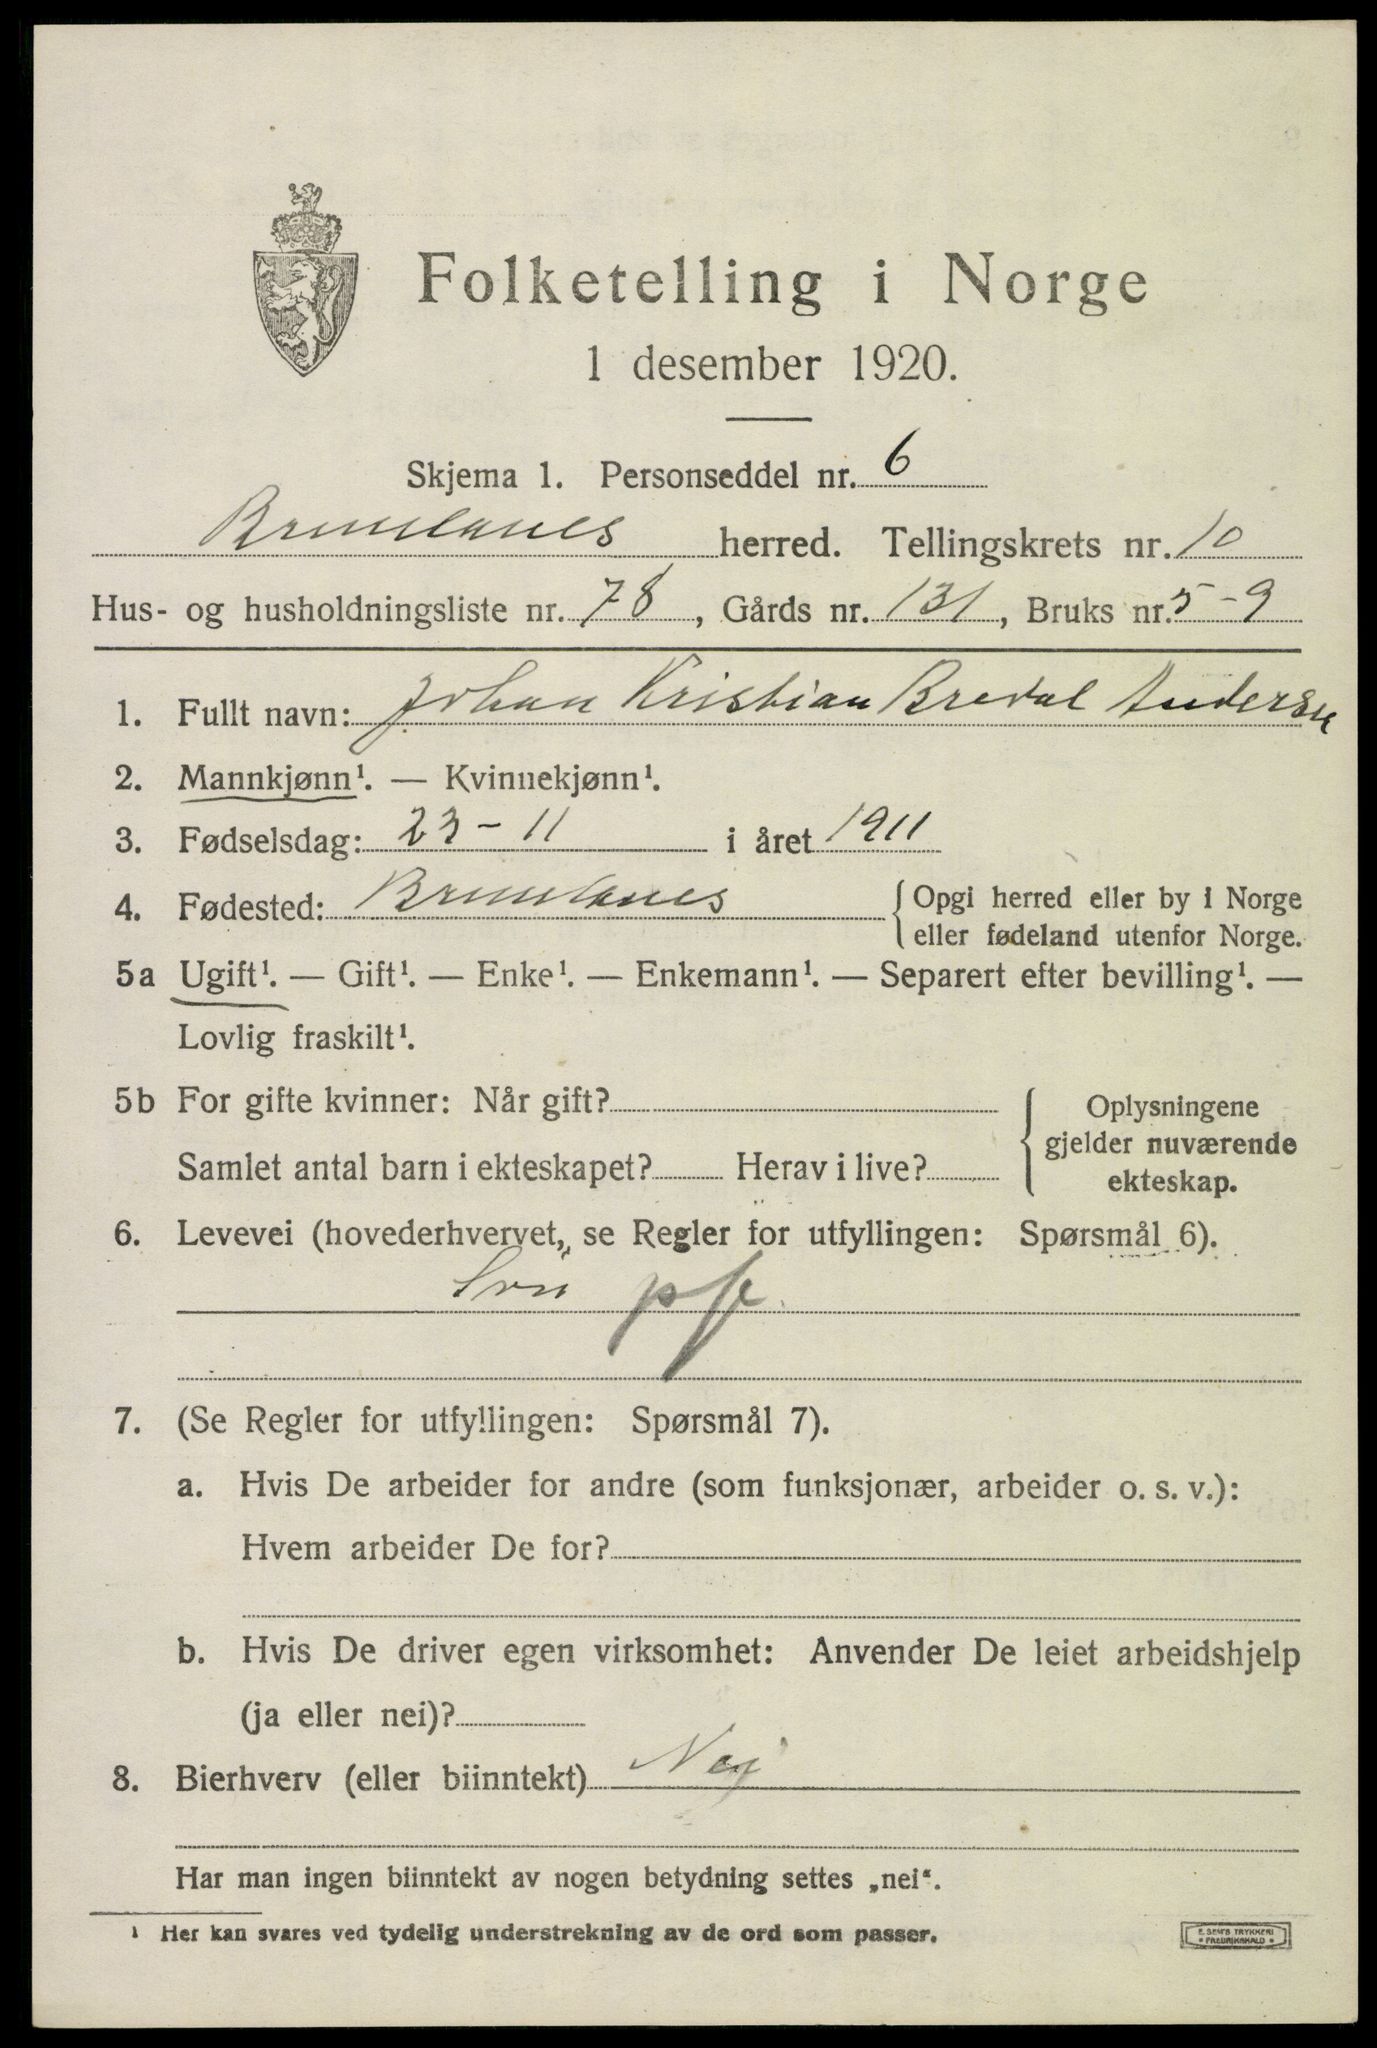 Folketelling i Norge
1 desember 1920.
Skjema 1. Personseddel nr. 6
Brunlanes herred. Tellingskrets nr. 10
Hus- og husholdningsliste nr. 78, Gårds nr. 131, Bruks nr. 5-9
1. Fullt navn: Johan Kristian Bredal Andersen
2. Mannkjønn¹. — Kvinnekjønn¹.
3. Fødselsdag: 23-11 i året 1911
4. Fødested: Brunlanes { Opgi herred eller by i Norge
eller fødeland utenfor Norge.
5a Ugift¹. — Gift¹. — Enke¹. — Enkemann¹. — Separert efter bevilling¹. —
Lovlig fraskilt¹.
5b For gifte kvinner: Når gift? { Oplysningene
gjelder nuværende
Samlet antal barn i ekteskapet? Herav i live?
ekteskap.
6. Levevei (hovederhvervet, se Regler for utfyllingen: Spørsmål 6).
Søn pf
7. (Se Regler for utfyllingen: Spørsmål 7).
a. Hvis De arbeider for andre (som funksjonær, arbeider o. s. v.):
Hvem arbeider De for?
b. Hvis De driver egen virksomhet: Anvender De leiet arbeidshjelp
(ja eller nei)?
8. Bierhverv (eller biinntekt) Nej
Har man ingen biinntekt av nogen betydning settes „nei“.
¹ Her kan svares ved tydelig understrekning av de ord som passer.
E. SEM'S TRYKKERI
FREDRIKSHALD